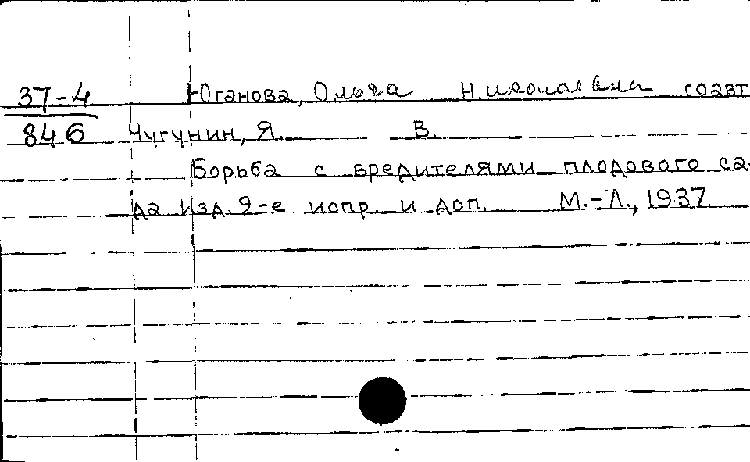 37-4 Юганова, Ольга Николаевна соавт
846 Чугунин, Я. В.
Борьба с вредителями плодового са-
да изд. 2-е испр. и доп. М.-Л., 1937